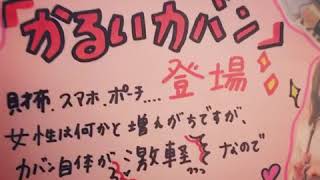 「かるいカバン」
登場
財布、スマホ、ポーチ....
女性は何かと増えがちですが、
カバン自体が激軽なので